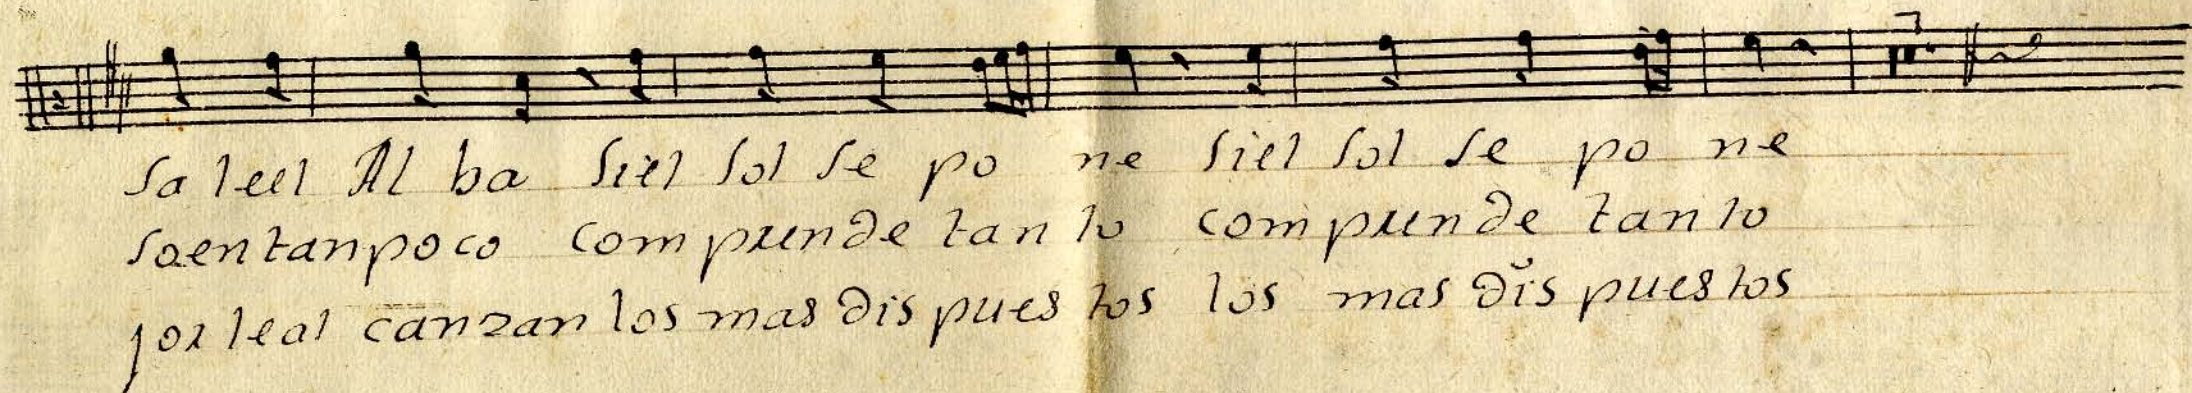 Sa leel Al ba Siel Sol Se po ne Siel Sol Se po ne
Soen tan poco Com prende tan to Com prende tan to
jor leal canzan los mas dis pues tos los mas dis pues tos